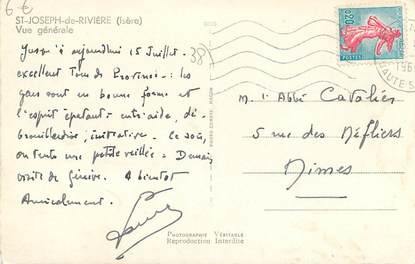 6€
ST-JOSEPH-de-RIVIÈRE (Isère)
Vue générale
38
0,20
POSTES
Jusqu'à aujourdhui 15 Juillet.
excellent Tour de Province : les
gars sont en bonne forme et
l'esprit épatant : entr'aide, dé-
brouillardise, initiative. Ce soir,
on tente une petite veillée. Demain
visite de Genève. A bientôt
Amicalement.
M. l'Abbé Cavaliés
5 rue des Néfliers
Nîmes
PHOTOGRAPHIE VÉRITABLE
Reproduction Interdite